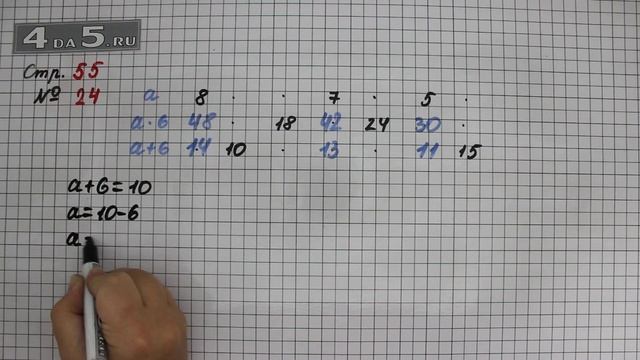 4 DA 5.RU
Стр. 55
№ 24
a 8 · · 7 · 5 ·
a·6 48 · 18 42 24 30 ·
a+6 14 10 · 13 · 11 15
a+6=10
a=10-6
a=